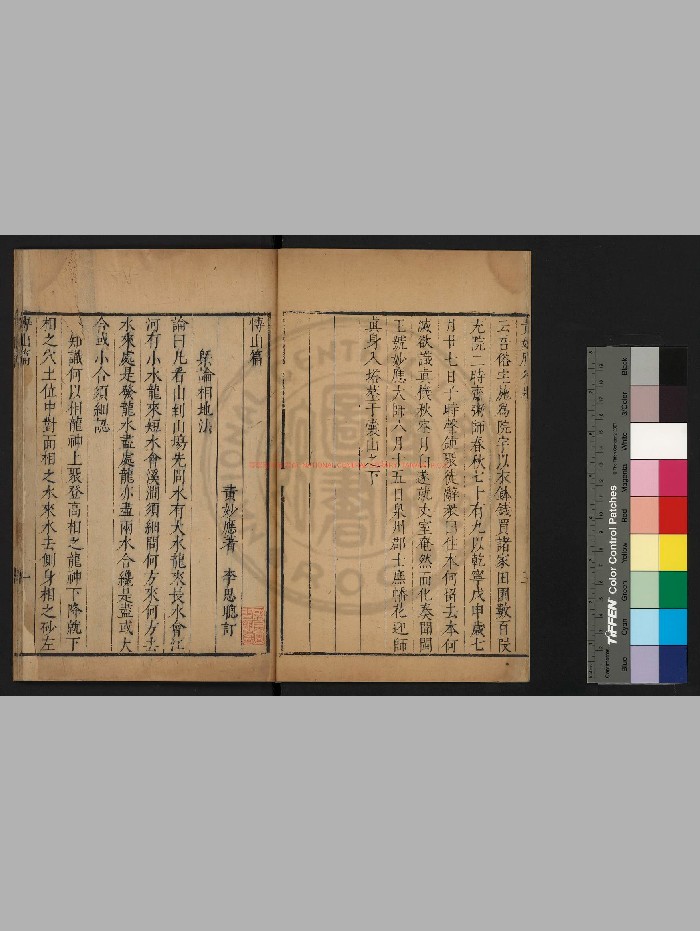 云召俗主施爲院宇以衣鉢錢買諸家田園數百段
充院二時齋粥師春秋七十有九以乾寧戊申歲七
月廿七日子時聲鐘聚徒辭衆曰往本何
滅欲識真機秋來月白遂就丈室奄然而化奏聞閩
王號妙應大師八月十五日泉州郡士庶幡花迎師
真身入塔塟于囊山之下
博山篇
黃妙應著 李思聰訂
槩論相地法
論曰凡看山到山塲先問水有大水龍來長水會江
河有小水龍來短水會溪澗須細問何方來何方去
水來處是發龍水盡處龍亦盡兩水合纔是盡或大
合或小合須細認
知識何以相龍神上聚登高相之龍神下降就下
相之穴土位中對面相之水來水去側身相之砂左
博山篇 一
TIFFEN Color Control Patches
Blue Cyan Green Yellow Red Magenta White 3/Color Black